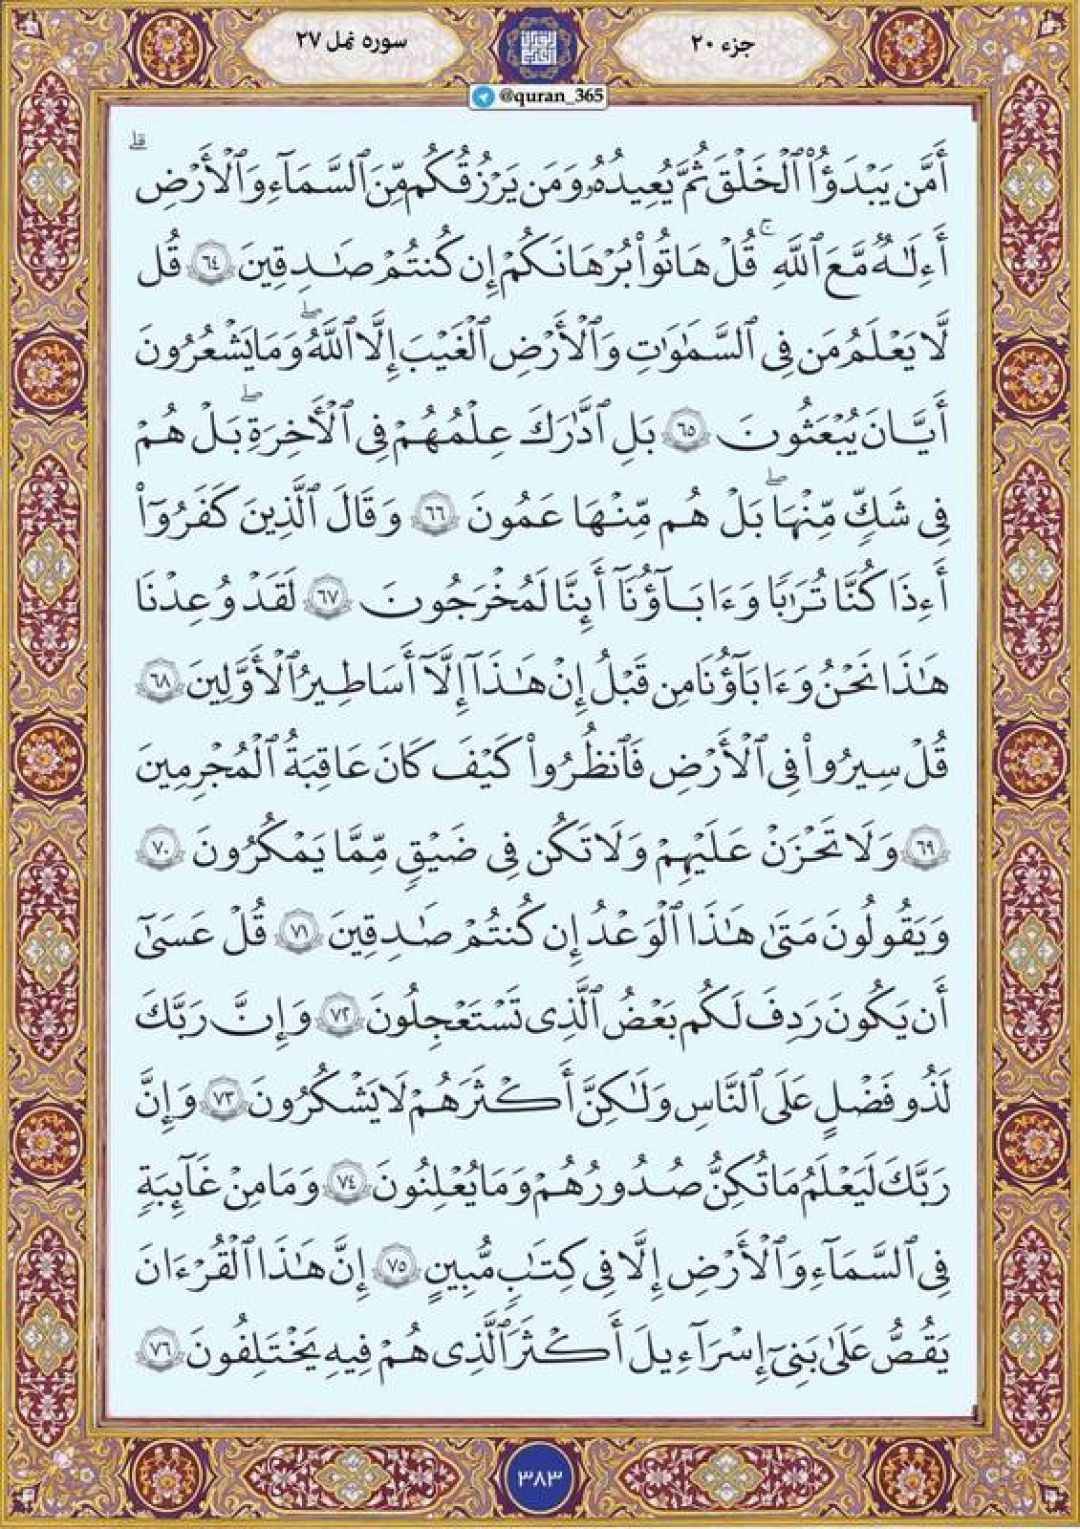 جزء ۲۰
سوره نمل ۲۷
@quran_365
أَمَّن يَبْدَؤُا۟ ٱلْخَلْقَ ثُمَّ يُعِيدُهُۥ وَمَن يَرْزُقُكُم مِّنَ ٱلسَّمَآءِ وَٱلْأَرْضِ ۗ
أَءِلَـٰهٌ مَّعَ ٱللَّهِ ۚ قُلْ هَاتُوا۟ بُرْهَانَكُمْ إِن كُنتُمْ صَـٰدِقِينَ ۝٦٤ قُل
لَّا يَعْلَمُ مَن فِى ٱلسَّمَـٰوَٰتِ وَٱلْأَرْضِ ٱلْغَيْبَ إِلَّا ٱللَّهُ ۖ وَمَا يَشْعُرُونَ
أَيَّانَ يُبْعَثُونَ ۝٦٥ بَلِ ٱدَّٰرَكَ عِلْمُهُمْ فِى ٱلْأَخِرَةِ ۖ بَلْ هُمْ
فِى شَكٍّ مِّنْهَا ۖ بَلْ هُم مِّنْهَا عَمُونَ ۝٦٦ وَقَالَ ٱلَّذِينَ كَفَرُوٓا۟
أَءِذَا كُنَّا تُرَٰبًا وَءَابَآؤُنَآ أَئِنَّا لَمُخْرَجُونَ ۝٦٧ لَقَدْ وُعِدْنَا
هَـٰذَا نَحْنُ وَءَابَآؤُنَا مِن قَبْلُ إِنْ هَـٰذَآ إِلَّآ أَسَاطِيرُ ٱلْأَوَّلِينَ ۝٦٨
قُلْ سِيرُوا۟ فِى ٱلْأَرْضِ فَٱنظُرُوا۟ كَيْفَ كَانَ عَاقِبَةُ ٱلْمُجْرِمِينَ
۝٦٩ وَلَا تَحْزَنْ عَلَيْهِمْ وَلَا تَكُن فِى ضَيْقٍ مِّمَّا يَمْكُرُونَ ۝٧٠
وَيَقُولُونَ مَتَىٰ هَـٰذَا ٱلْوَعْدُ إِن كُنتُمْ صَـٰدِقِينَ ۝٧١ قُلْ عَسَىٰٓ
أَن يَكُونَ رَدِفَ لَكُم بَعْضُ ٱلَّذِى تَسْتَعْجِلُونَ ۝٧٢ وَإِنَّ رَبَّكَ
لَذُو فَضْلٍ عَلَى ٱلنَّاسِ وَلَـٰكِنَّ أَكْثَرَهُمْ لَا يَشْكُرُونَ ۝٧٣ وَإِنَّ
رَبَّكَ لَيَعْلَمُ مَا تُكِنُّ صُدُورُهُمْ وَمَا يُعْلِنُونَ ۝٧٤ وَمَا مِنْ غَآئِبَةٍ
فِى ٱلسَّمَآءِ وَٱلْأَرْضِ إِلَّا فِى كِتَـٰبٍ مُّبِينٍ ۝٧٥ إِنَّ هَـٰذَا ٱلْقُرْءَانَ
يَقُصُّ عَلَىٰ بَنِىٓ إِسْرَٰٓءِيلَ أَكْثَرَ ٱلَّذِى هُمْ فِيهِ يَخْتَلِفُونَ ۝٧٦
۳۸۳